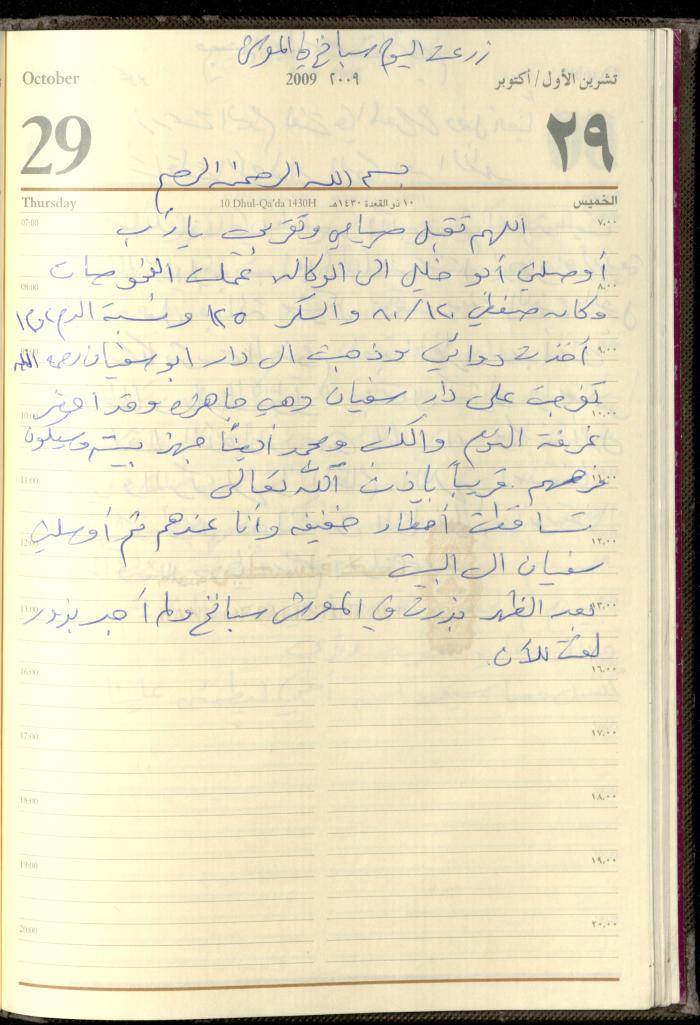 زرعت اليوم سبانخ في المعرش
October
2009 ٢٠٠٩
تشرين الأول/أكتوبر
29
٢٩
بسم الله الرحمن الرحيم
Thursday
10 Dhul-Qa'da 1430H ١٠ ذو القعدة ١٤٣٠هـ
الخميس
07:00 اللهم تقبل صيامي وتقربي يا رب ٧,٠٠
أوصلني أبو خليل الى الوكالة عملت الفحوصات
08:00 ٨,٠٠
وكان ضغطي ١٢٠/٨٠ والسكر ١٢٥ ونسبة الدم
أخذت دوائي وذهبت ال دار ابو سفيان رحمه الله ٩,٠٠
تفرجت على دار سفيان وهي جاهزة وقد أحضر
10:00 ١٠,٠٠
غرفة النوم والكنب ومحمد أيضاً جهز بيته وسيكون
11:00 فرحهم قريباً بإذن الله تعالى
تساقطت أمطار خفيفة وأنا عندهم ثم أوصلني
12:00 ١٢,٠٠
سفيان ال البيت
13:00 بعد الظهر بذرت في المعرش سبانخ ولم أجد بذور ١٣,٠٠
لفت للآن
16:00 ١٦,٠٠
17:00 ١٧,٠٠
18:00 ١٨,٠٠
19:00 ١٩,٠٠
20:00 ٢٠,٠٠